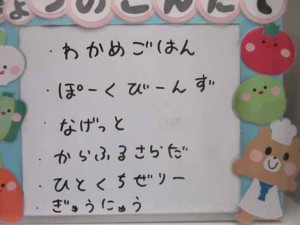 きょうのこんだて
・わかめごはん
・ぽーくびーんず
・なげっと
・からふるさらだ
・ひとくちぜりー
・ぎゅうにゅう